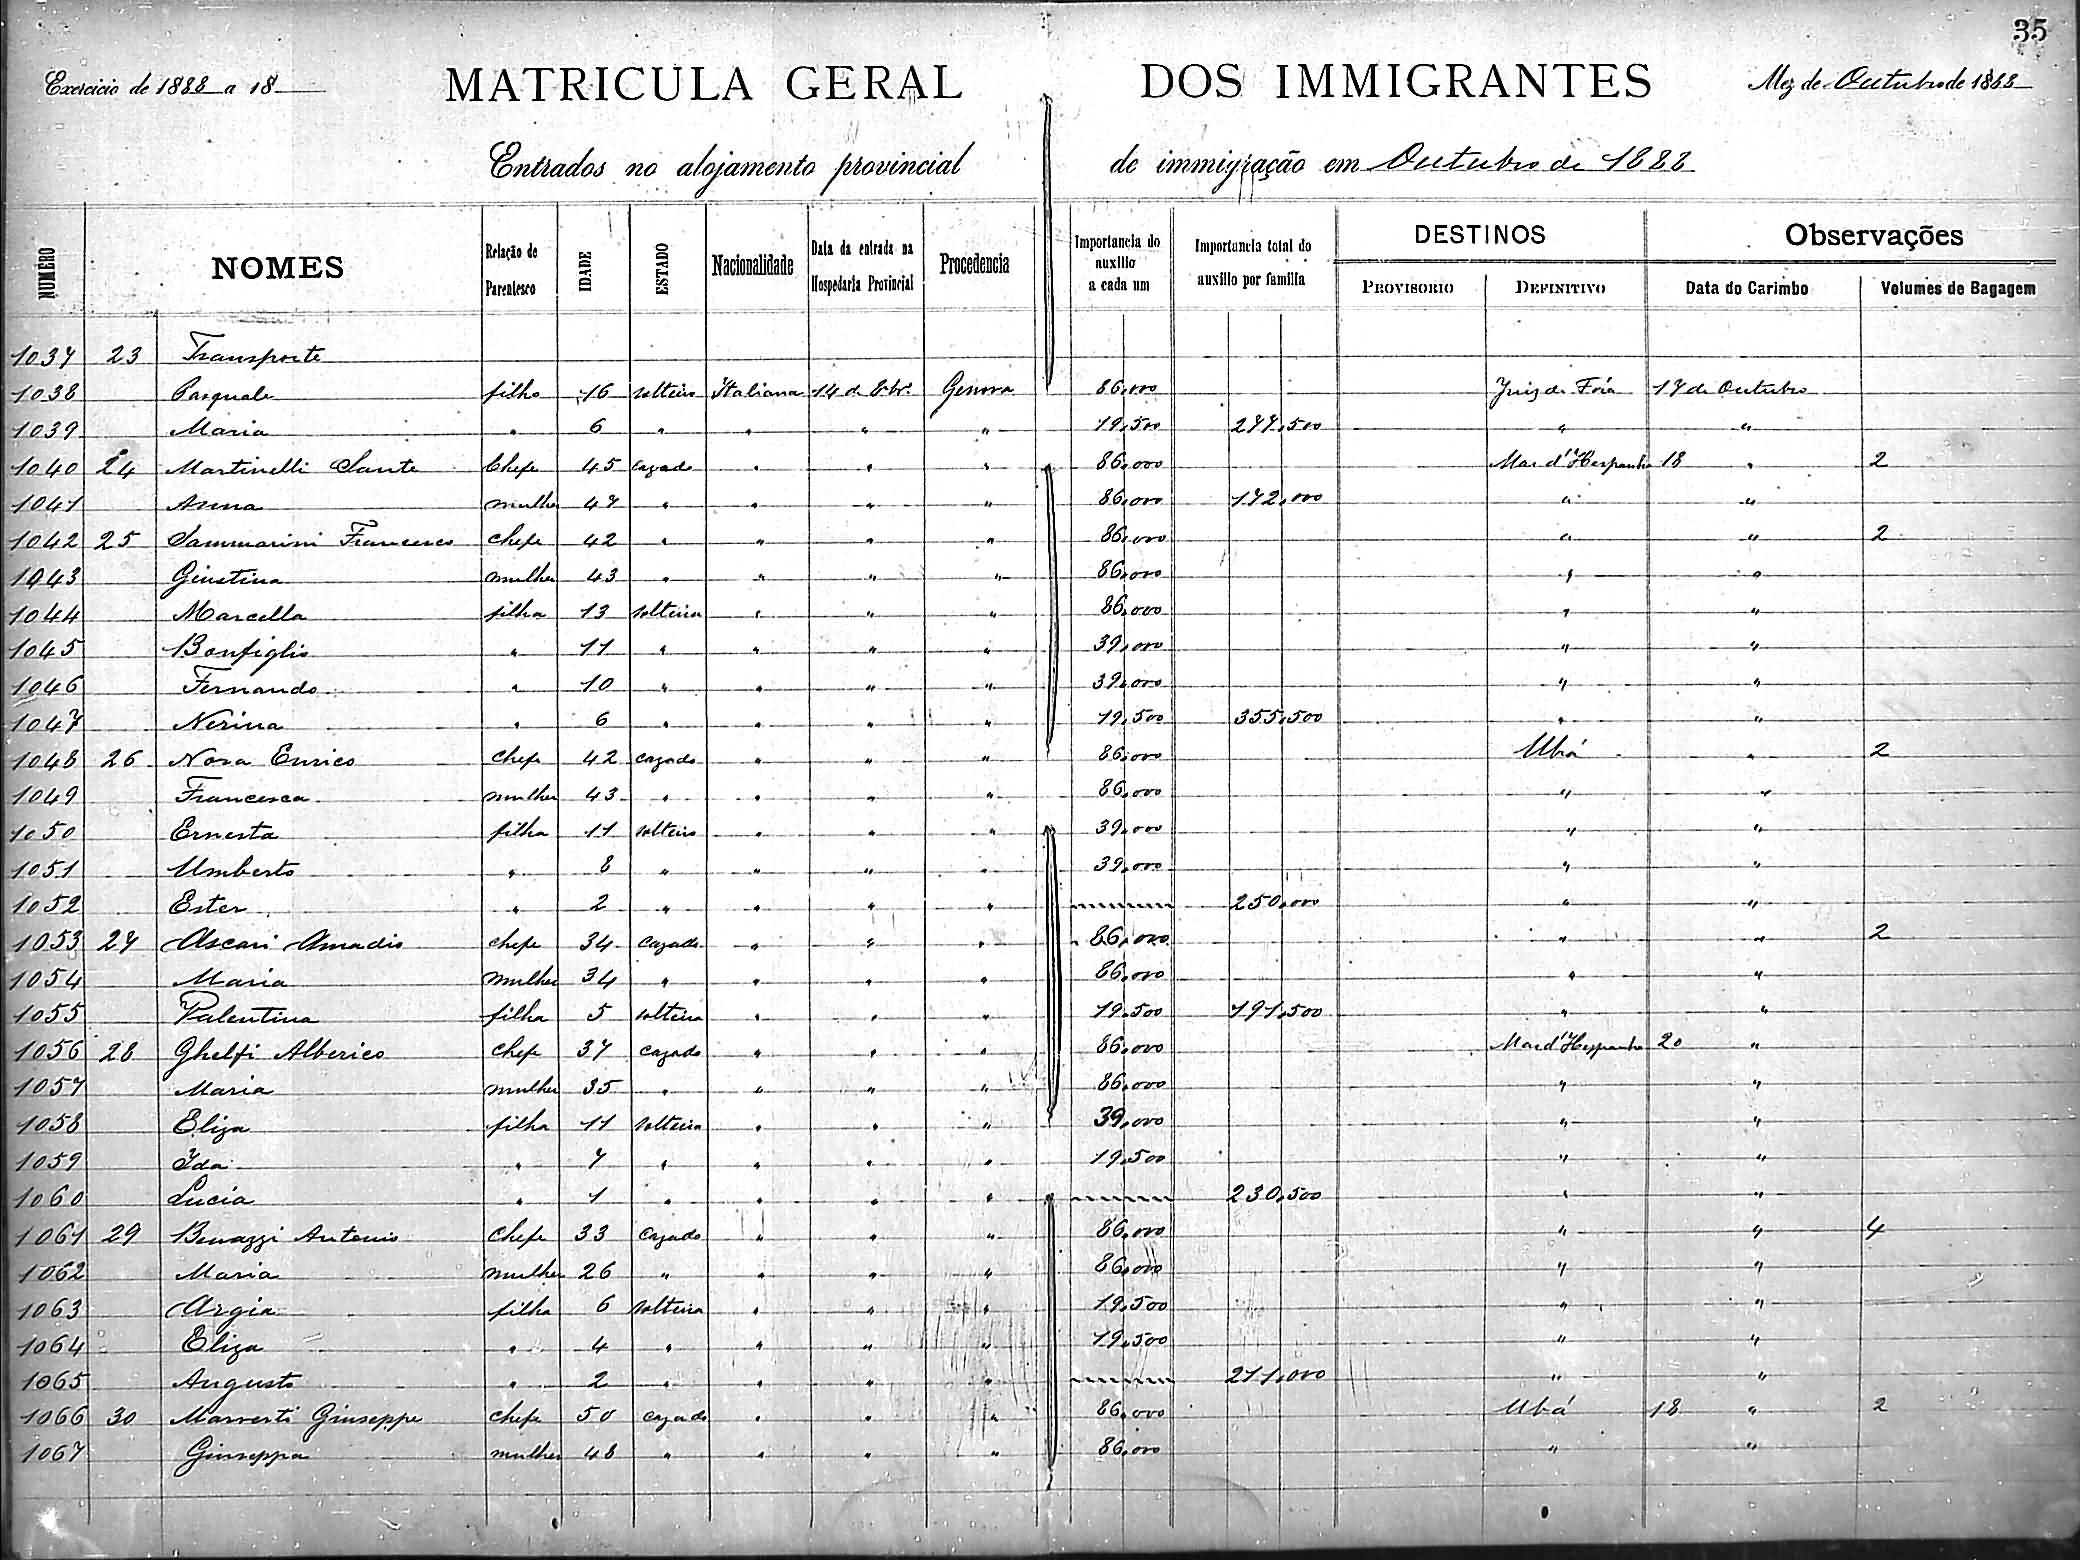 35
Exercicio de 1888 a 18
MATRICULA GERAL DOS IMMIGRANTES
Mez de Outubro de 1888
Entrados no alojamento provincial de immigração em Outubro de 1888
NUMERO NOMES Relação de Parentesco IDADE ESTADO Nacionalidade Data da entrada na Hospedaria Provincial Procedencia Importancia do auxilio a cada um Importancia total do auxilio por familia DESTINOS PROVISORIO DEFINITIVO Observações Data do Carimbo Volumes de Bagagem
1037 23 Transporte
1038 Pasquale filho 16 solteiro Italiana 14 de 8br.º Genova 86,000 Juiz de Fóra 17 de Outubro
1039 Maria " 6 " " " " 19,500 277,500 " "
1040 24 Martinelli Sante Chefe 45 cazado " " " 86,000 Mar d'Hespanha 18 " 2
1041 Anna mulher 47 " " " " 86,000 172,000 " "
1042 25 Sammarini Francesco chefe 42 " " " " 86,000 " " 2
1043 Giustina mulher 43 " " " " 86,000 " "
1044 Marcella filha 13 solteira " " " 86,000 " "
1045 Bonfiglio " 11 " " " " 39,000 " "
1046 Fernando " 10 " " " " 39,000 " "
1047 Nerina " 6 " " " " 19,500 355,500 " "
1048 26 Nora Enrico chefe 42 cazado " " " 86,000 Ubá " 2
1049 Francesca mulher 43 " " " " 86,000 " "
1050 Ernesta filha 11 solteiro " " " 39,000 " "
1051 Umberto " 8 " " " " 39,000 " "
1052 Ester " 2 " " " " 250,000 " "
1053 27 Ascari Amadio chefe 34 cazado " " " 86,000 " " 2
1054 Maria mulher 34 " " " " 86,000 " "
1055 Valentina filha 5 solteira " " " 19,500 191,500 " "
1056 28 Ghelfi Alberico chefe 37 cazado " " " 86,000 Mar d'Hespanha 20 "
1057 Maria mulher 35 " " " " 86,000 " "
1058 Eliza filha 11 solteira " " " 39,000 " "
1059 Ida " 7 " " " " 19,500 " "
1060 Lucia " 1 " " " " 230,500 " "
1061 29 Benazzi Antonio chefe 33 cazado " " " 86,000 " " 4
1062 Maria mulher 26 " " " " 86,000 " "
1063 Argia filha 6 solteira " " " 19,500 " "
1064 Eliza " 4 " " " " 19,500 " "
1065 Augusto " 2 " " " " 211,000 " "
1066 30 Marverti Giuseppe chefe 50 cazado " " " 86,000 Ubá 18 " 2
1067 Giuseppa mulher 48 " " " " 86,000 " "